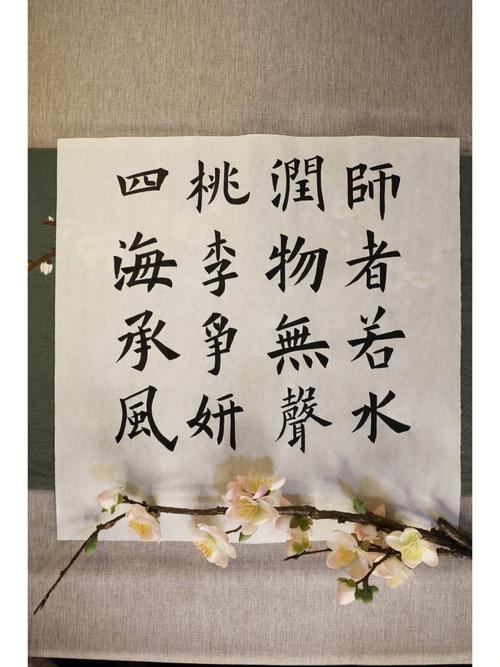 師者若水
潤物無聲
桃李爭妍
四海承風